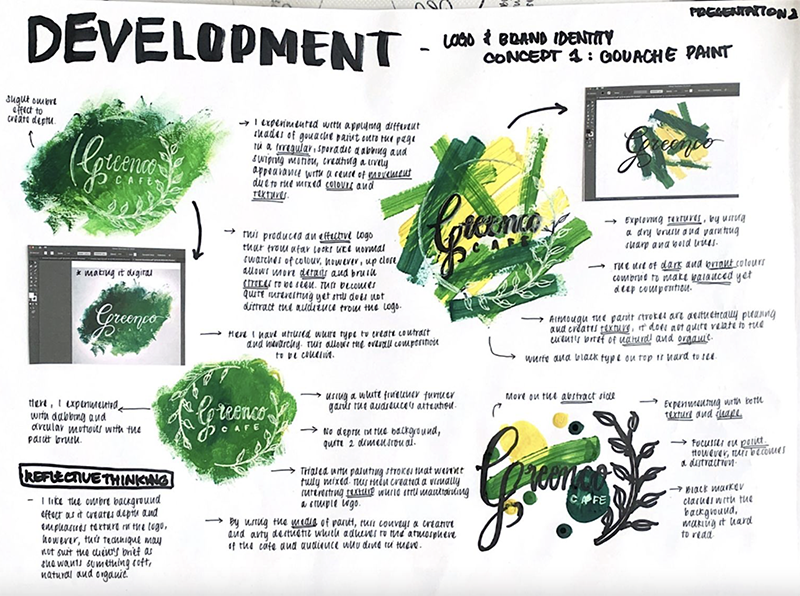 PRESENTATION 2
DEVELOPMENT
- LOGO & BRAND IDENTITY
CONCEPT 1: GOUACHE PAINT
slight ombre
effect to
create depth.
Greenco
CAFE
I experimented with applying different
shades of gouache paint onto the page
in a irregular, sporadic dabbing and
swiping motion, creating a lively
appearance with a sense of movement
due to the mixed colours and
textures.
This produced an effective logo
that from afar looks like normal
swatches of colour. however, up close
allows more details and brush
strokes to be seen. This becomes
quite interesting yet still does not
distract the audience from the logo.
* making it digital
Greenco
Here I have utilised white type to create contrast
and hierarchy. This allows the overall composition
to be cohesive.
Greenco
CAFE
Greenco
Exploring textures, by using
a dry brush and painting
sharp and bold lines.
The use of dark and bright colours
combine to make balanced yet
deep composition.
Although the paint strokes are aesthetically pleasing
and creates texture, it does not quite relate to the
client's brief of natural and organic.
White and black type on top is hard to see.
Here, I experimented
with dabbing and
circular motions with the
paint brush.
Greenco
CAFE
using a white fineliner further
gains the audience's attention.
No depth in the background,
quite 2 dimensional.
Trialed with painting strokes that weren't
fully mixed. This then created a visually
interesting texture while still maintaining
a simple logo.
By using the media of paint, this conveys a creative
and arty aesthetic which adheres to the atmosphere
of the cafe and audience who dine in there.
REFLECTIVE THINKING
- I like the ombre background
effect as it creates depth and
emphasises texture in the logo,
however, this technique may
not suit the client's brief as
she wants something soft,
natural and organic.
More on the abstract side
Greenco
CAFE
Experimenting with both
texture and shape.
Focuses on paint.
However, this becomes
a distraction.
Black marker
clashes with the
background,
making it hard
to read.